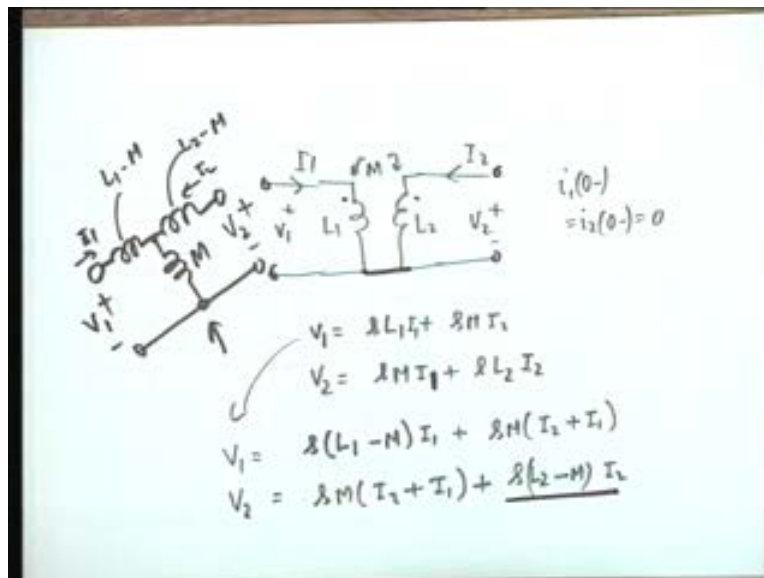 L₁-M
L₂-M
I₁
I₂
V₁
+
-
M
V₂
+
-
I1
M
I₂
V₁
+
-
L₁
L₂
V₂
+
-
i₁(0-)
=i₂(0-)=0
V₁= sL₁I₁+ sMI₂
V₂= sMI₁+ sL₂I₂
V₁= s(L₁-M)I₁ + sM(I₂+I₁)
V₂ = sM(I₂+I₁)+ s(L₂-M) I₂